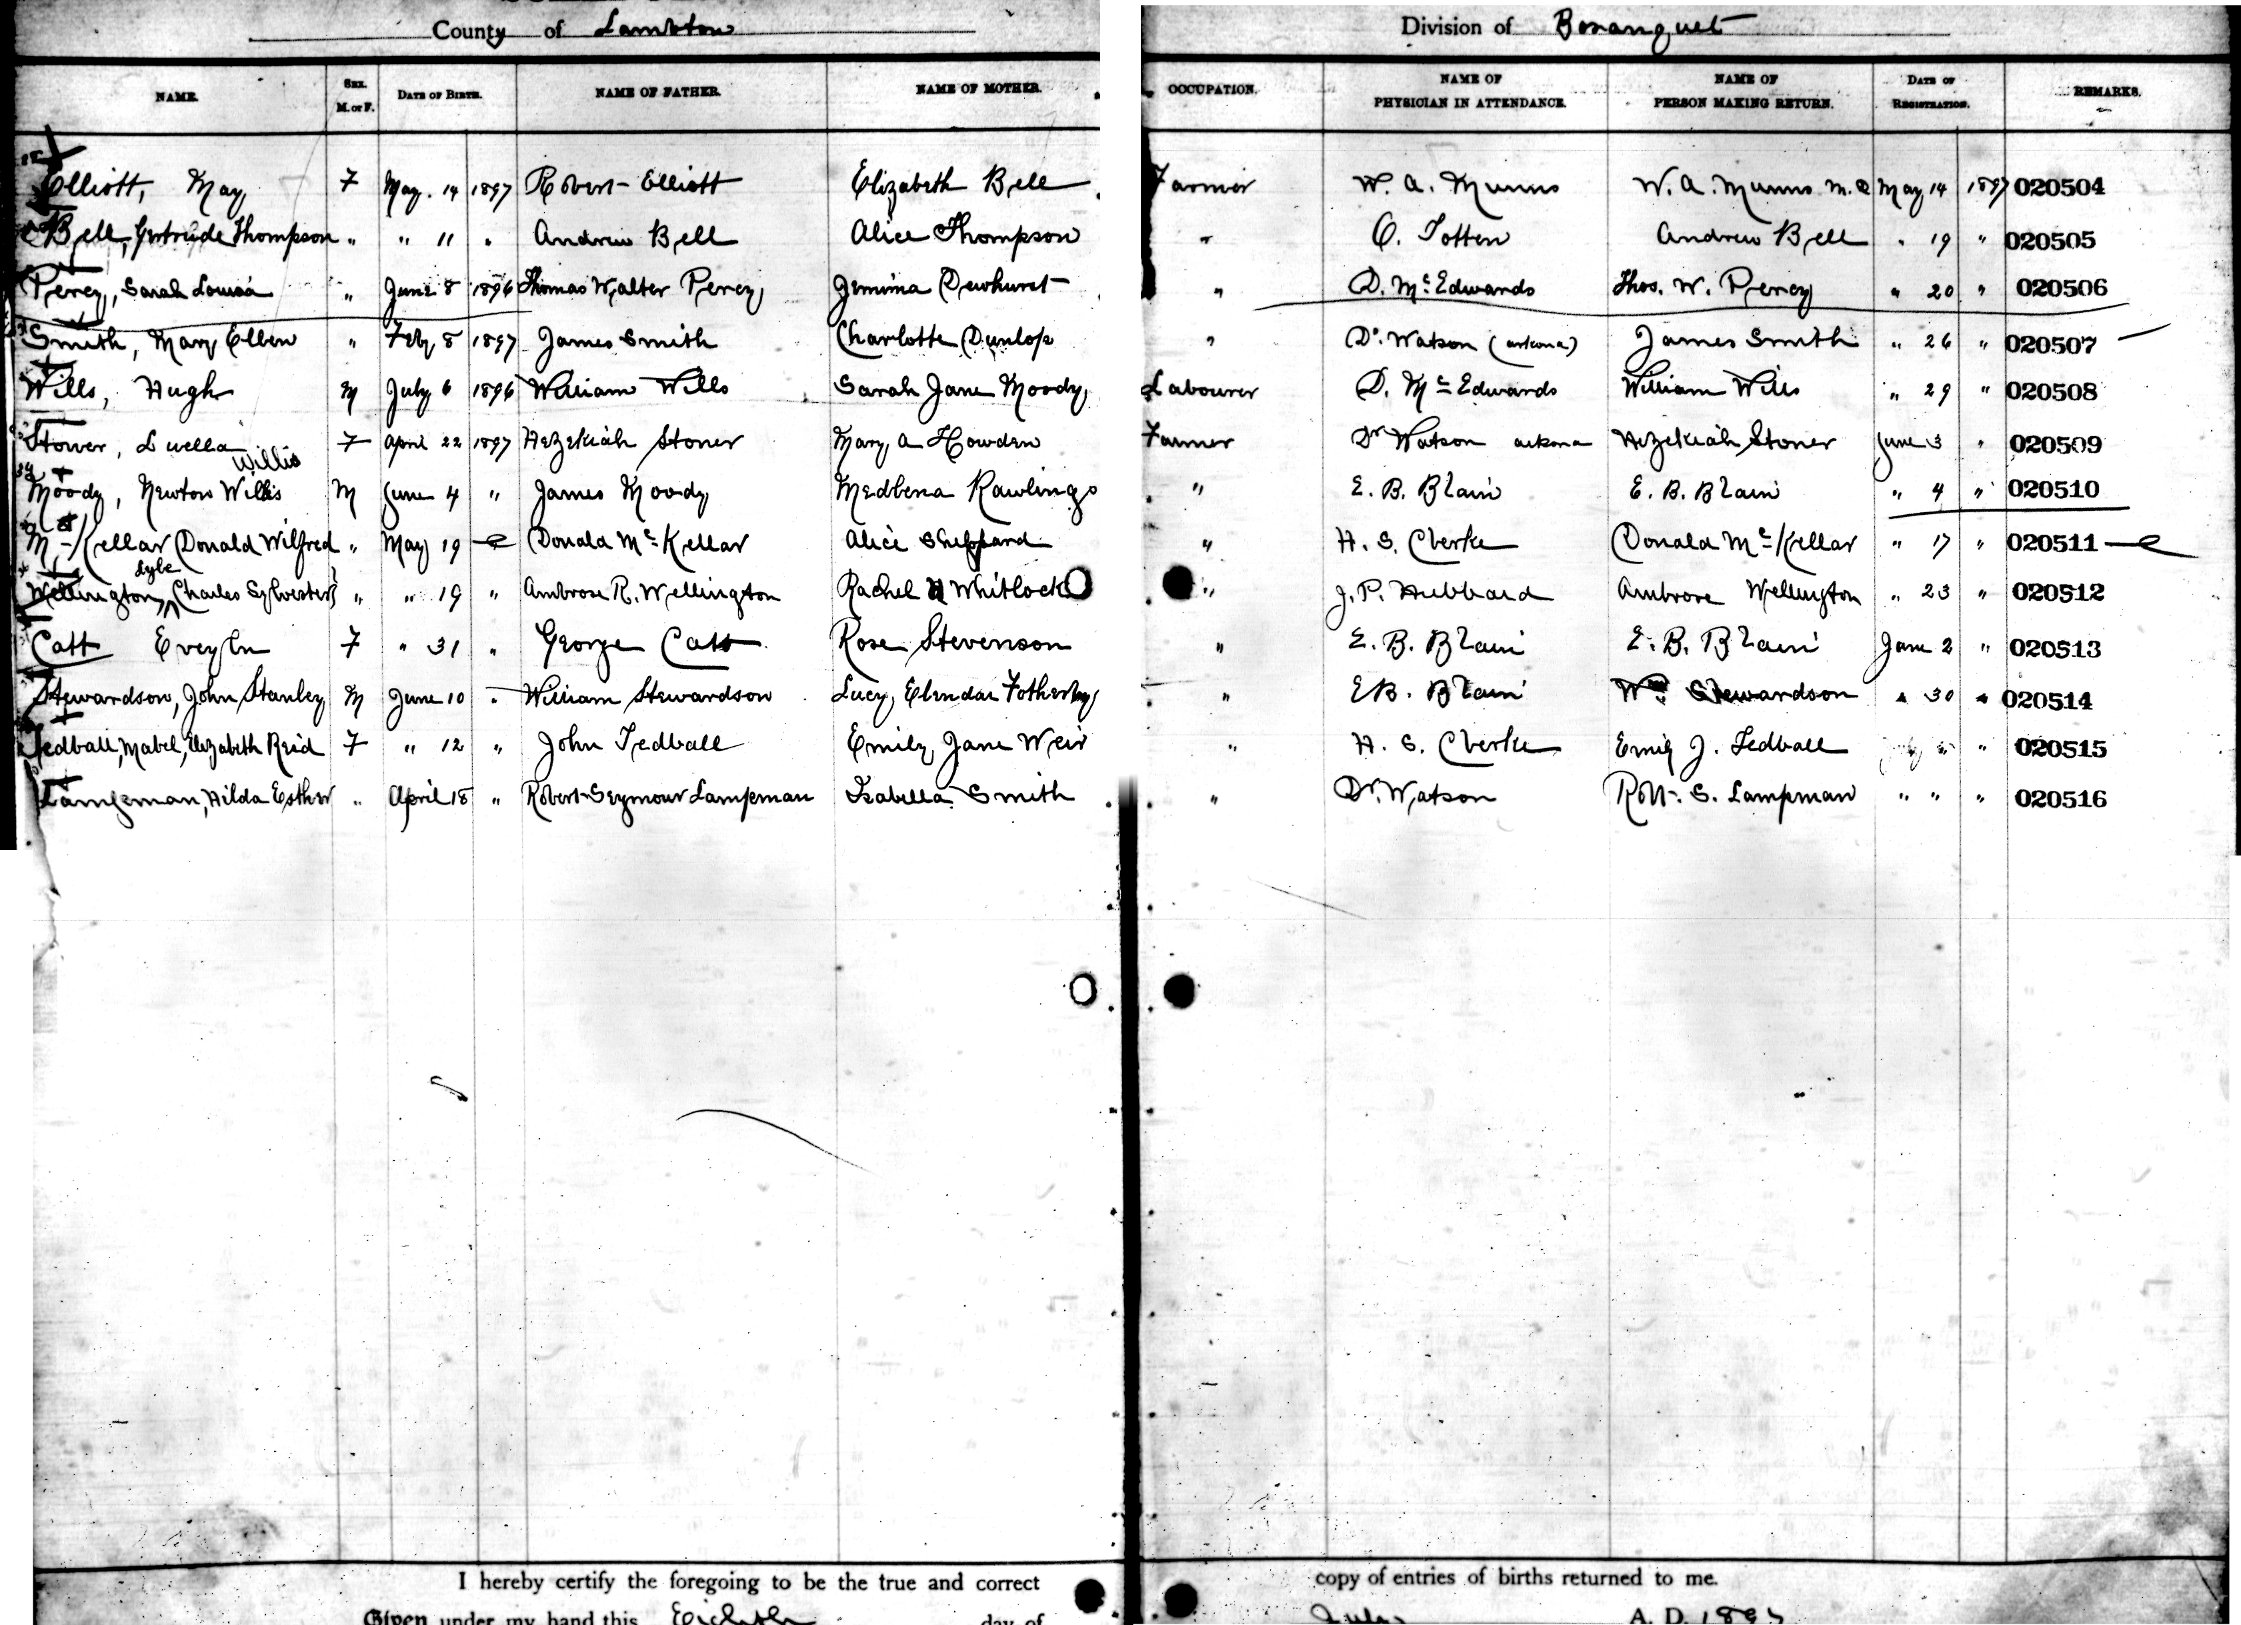 County of Lambton Division of Bosanquet
NAME. SEX. M. or F. DATE OF BIRTH. NAME OF FATHER. NAME OF MOTHER. OCCUPATION. NAME OF PHYSICIAN IN ATTENDANCE. NAME OF PERSON MAKING RETURN. DATE OF REGISTRATION. REMARKS.
Elliott, May F May 14 1897 Robert Elliott Elizabeth Bell Farmer W. A. Munns W. A. Munns M.D May 14 1897 020504
Bell, Gertrude Thompson " " 11 " Andrew Bell Alice Thompson " C. Totten Andrew Bell " 19 " 020505
Percy, Sarah Louisa " June 8 1896 Thomas Walter Percy Jemima Dewhurst " D. Mc Edwards Thos. W. Percy " 20 " 020506
Smith, Mary Ellen " Feby 8 1897 James Smith Charlotte Dunlop " Dr Watson (arkona) James Smith " 26 " 020507
Wills, Hugh M July 6 1896 William Wills Sarah Jane Moody Labourer D. Mc Edwards William Wills " 29 " 020508
Stoner, Luella F April 22 1897 Hezekiah Stoner Mary A Howden Farmer Dr Watson arkona Hezekiah Stoner June 3 " 020509
Willis
Moody, Newton Willis M June 4 " James Moody Medbena Rawlings " E. B. Blain E. B. Blain " 4 " 020510
Mc Kellar Donald Wilfred " May 19 Donald Mc Kellar Alice Sheppard " H. S. Clerke Donald Mc Kellar " 17 " 020511
Lyle
Wellington, Charles Sylvester " " 19 " Ambrose R. Wellington Rachel Whitlock " J. P. Hubbard Ambrose Wellington " 23 " 020512
Catt Eveyln F " 31 " George Catt Rose Stevenson " E. B. Blain E. B. Blain June 2 " 020513
Stewardson, John Stanley M June 10 " William Stewardson Lucy Elendar Fotherby " E B. Blain Wm Stewardson " 30 " 020514
Tedball, Mabel, Elizabeth Reid F " 12 " John Tedball Emily Jane Weir " H. S. Clerke Emily J. Tedball " 020515
Lampman, Hilda Esther " April 18 " Robert Seymour Lampman Isabella Smith " Dr. Watson Robt. S. Lampman " " " 020516
I hereby certify the foregoing to be the true and correct copy of entries of births returned to me.
Given under my hand this Eighth day of July A. D. 1897